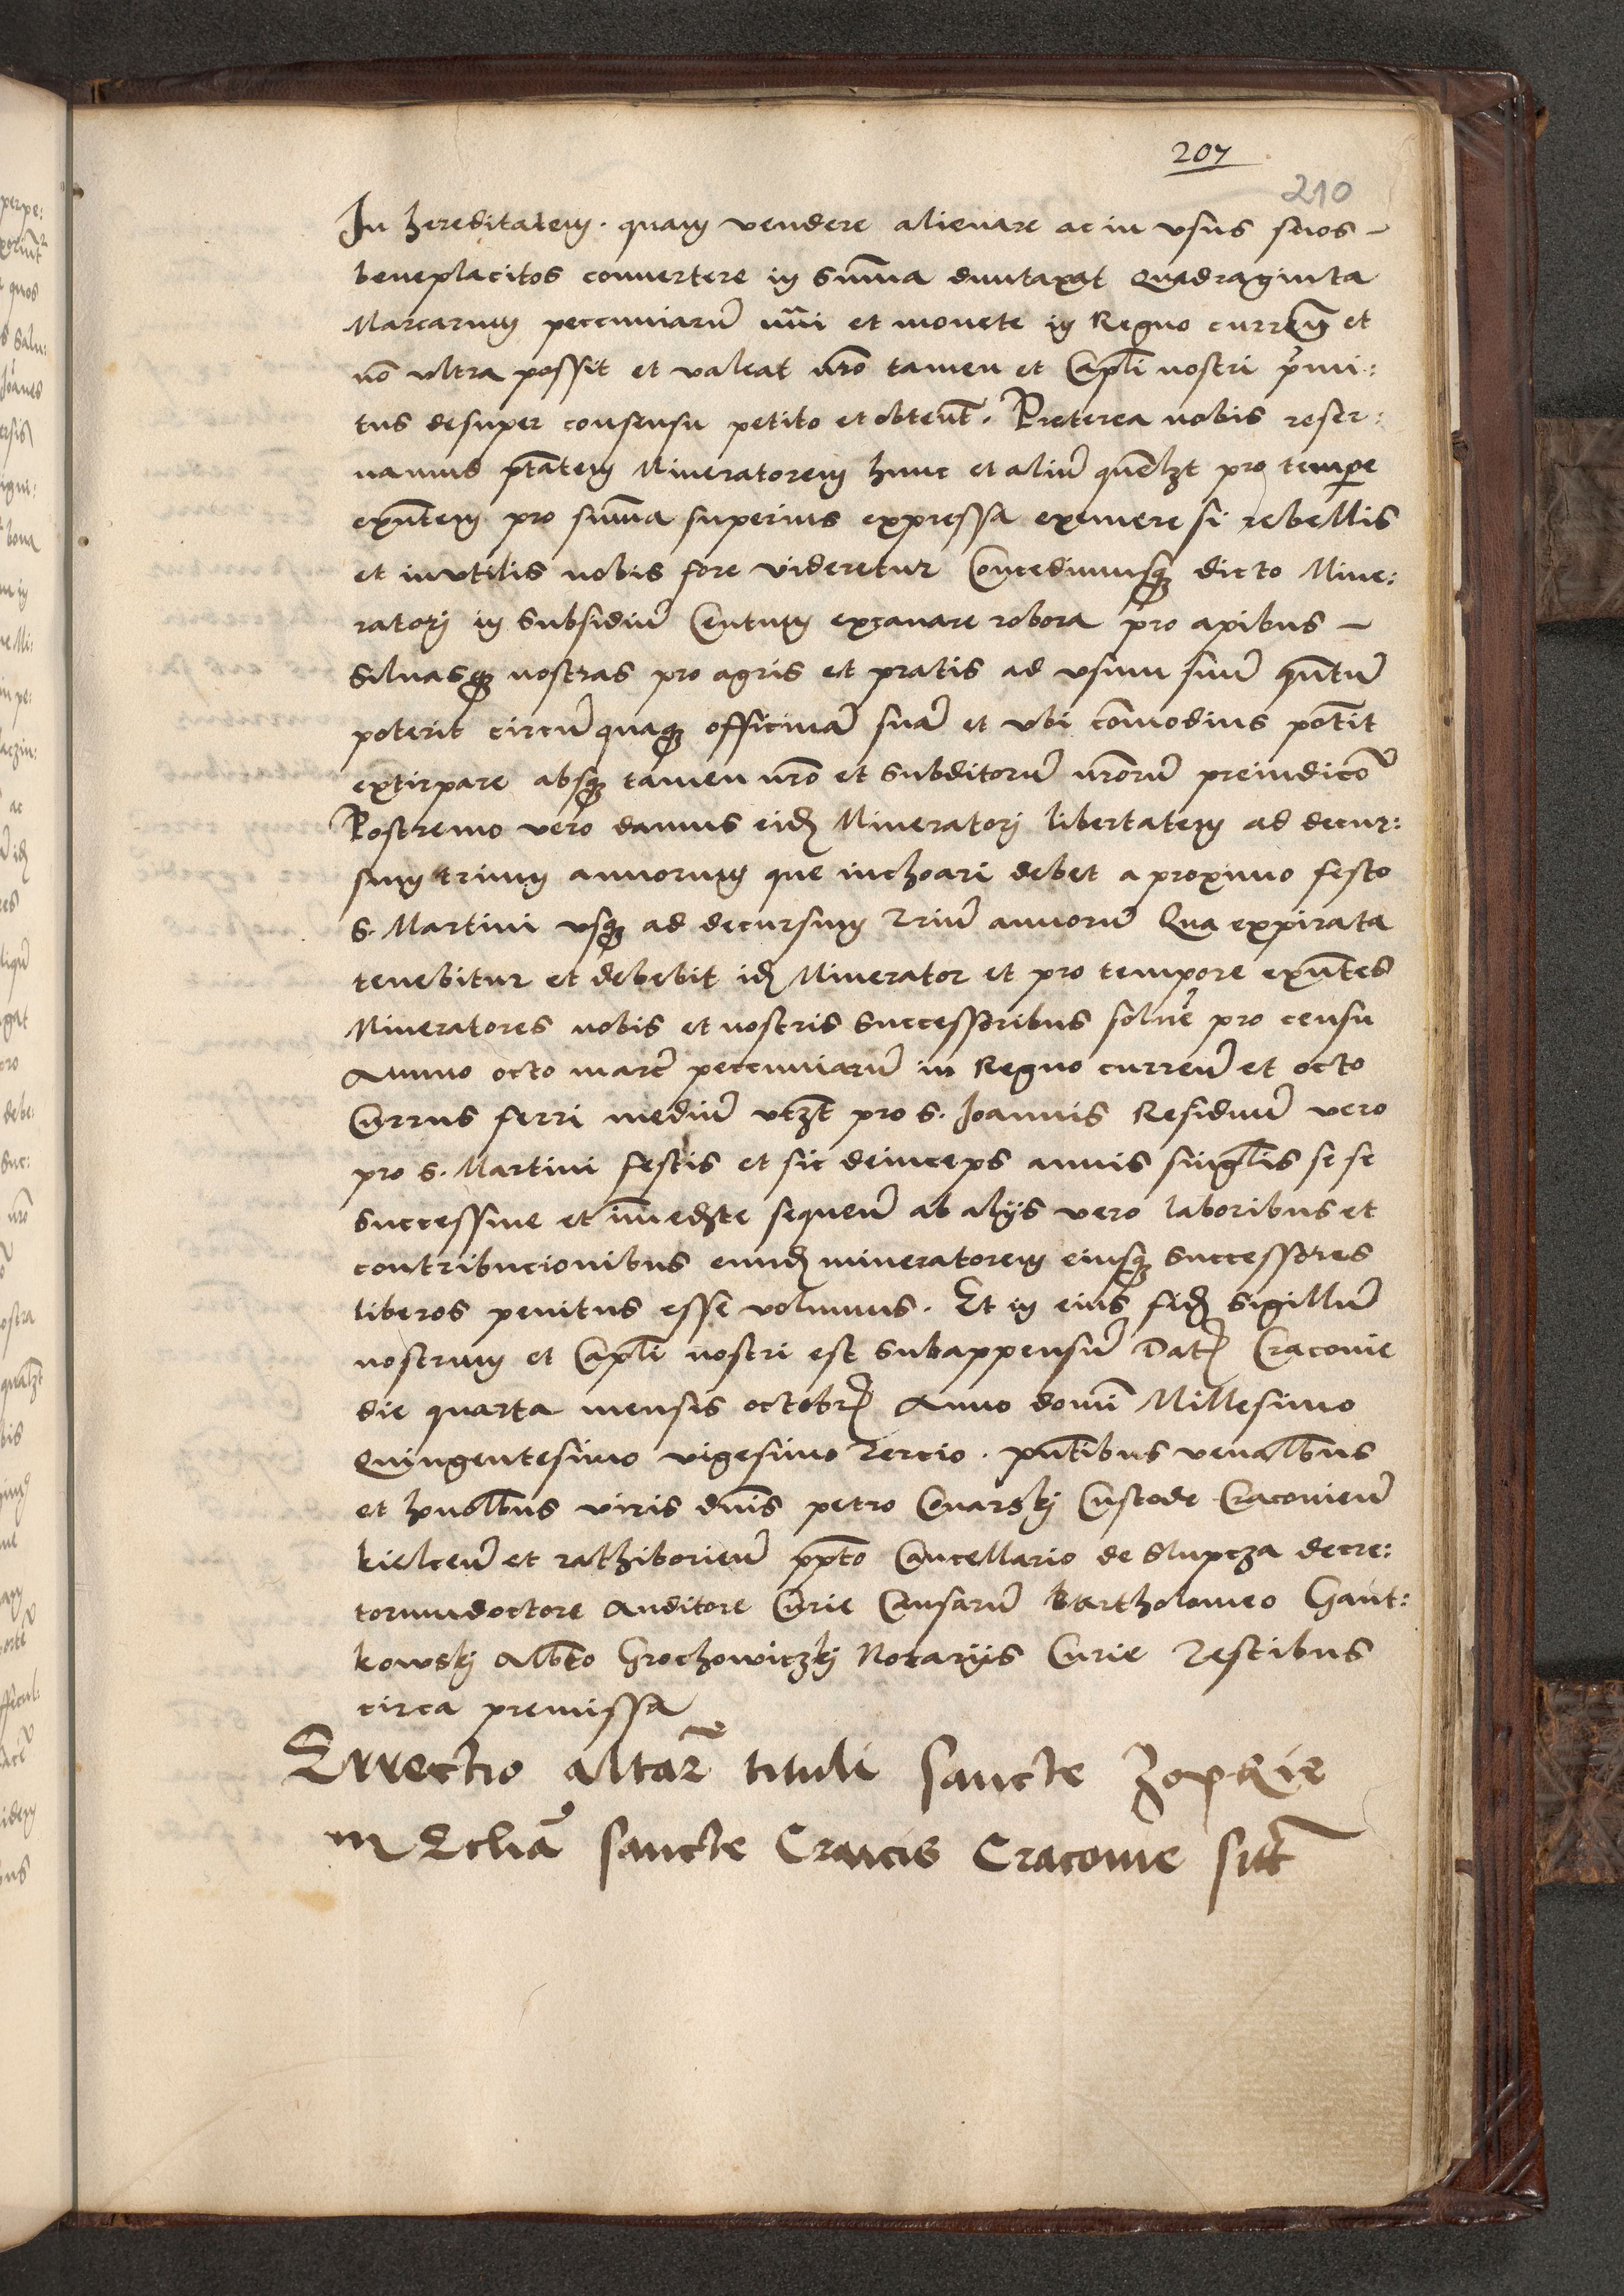 207
210
In hereditatem. quam vendere alienare ac in vsus suos -
beneplacitos conuertere in summa duntaxat Quadraginta
Marcarum peccuniarũ nũi et monete in Regno curreñ et
nõ vltra possit et valeat nrõ tamen et Capłi nostri primi:
tus desuper consensu petito et obtent̃. Preterea nobis reser:
uamus ptãtem Mineratorem hunc et aliũ quẽlzt pro tempe
exñtem pro summa superius expressa eximere si rebellis
et invtilis nobis fore videretur Concedimusqʒ dicto Mine:
ratorj in Subsidiũ Centum excauare robora pro apibus -
Siluasqʒ nostras pro agris et pratis ad vsum suũ qũtũ
poterit circũquaqʒ officinã suã et vbi cõmodius potĩt
extirpare absqʒ tamen nrõ et Subditorũ nrõrũ preiudicõ
Postremo vero damus eidʒ Mineratorj libertatem ad decur:
sum trium annorum que inchoari debet a proximo festo
S. Martini vsqʒ ad decursum Triũ annorũ Qua expirata
tenebitur et debebit idʒ Minerator et pro tempore exñtes
Mineratores nobis et nostris Successoribus soluẽ pro censu
Annuo octo marc̃ peccuniarũ in Regno curreñ et octo
Currus ferri mediũ vtzt pro S. Joannis Residuũ vero
pro S. Martini festis et sic deinceps annis singłis se se
Successiue et imẽdzte sequeñ ab alijs vero laboribus et
contribucionibus eundʒ mineratorem eiusqʒ Successores
liberos penitus esse volumus. Et in eius fidʒ Sigillũ
nostrum et Capłi nostri est Subappensũ Datʒ Cracouie
die quarta mensis octobrʒ Anno domĩ Millesimo
Quingentesimo vigesimo Tercio. pñtibus venałbus
et honołbus viris dnĩs petro Conarskj Custode Cracouieñ
kielceñ et rathiborieñ ppto Cancellario de Slupcza decre:
torumdoctore Auditore Curie Causarũ Bartholomeo Gant:
kowskj Albto Grochowiczkj Notarijs Curie Testibus
circa premissa
Errectio altar̃ tituli sancte Zophie
in Ecliã sancte Crucis Cracouie sit̃